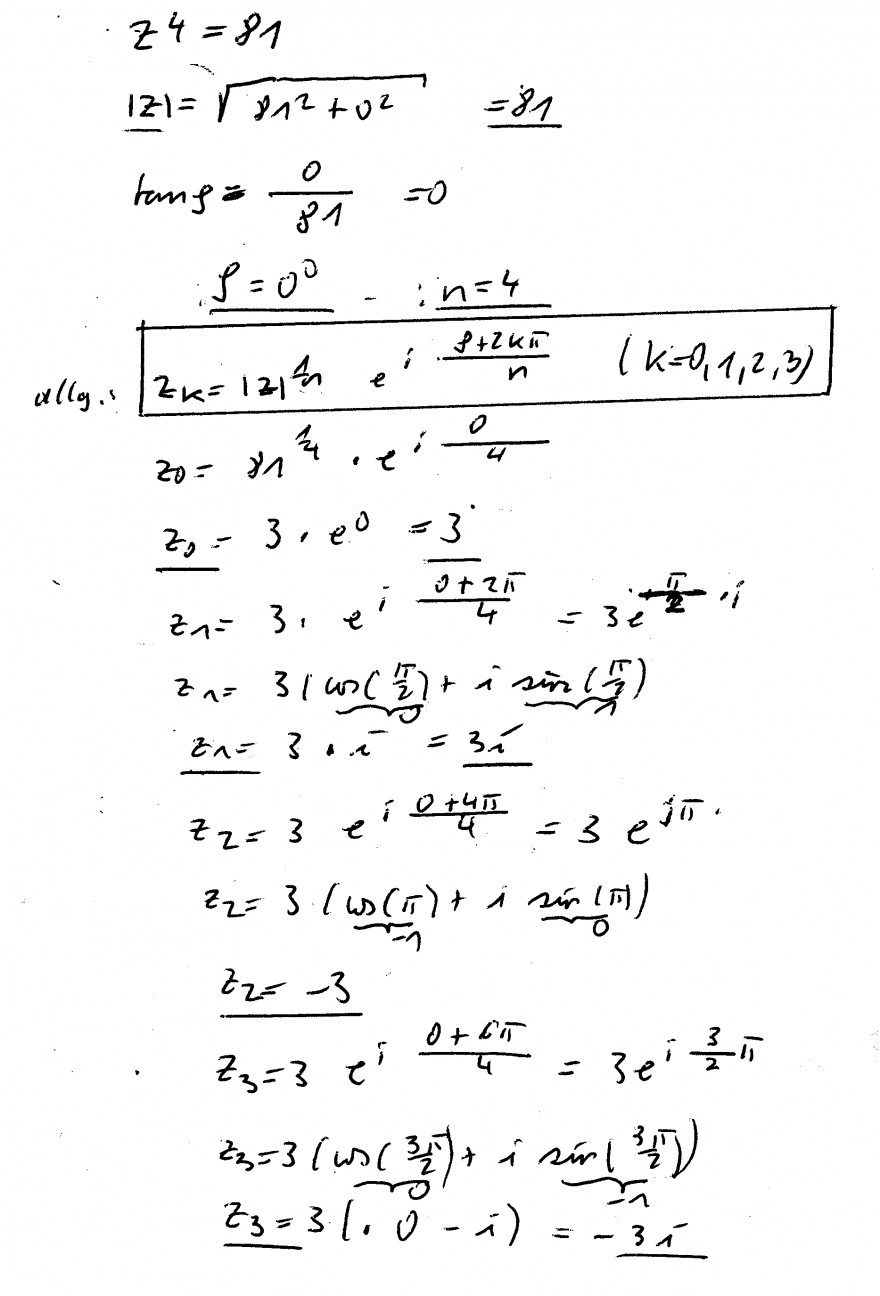 z^4 = 81
|z| = √(81² + 0²) = 81
tan φ = 0/81 = 0
φ = 0° ; n = 4
allg.: z_k = |z|^(1/n) e^(i (φ+2kπ)/n) (k=0,1,2,3)
z_0 = 81^(1/4) · e^(i 0/4)
z_0 = 3 · e^0 = 3
z_1 = 3 · e^(i (0+2π)/4) = 3e^(π/2 · i)
z_1 = 3 (cos(π/2) + i sin(π/2)
0 1
z_1 = 3 · i = 3i
z_2 = 3 e^(i (0+4π)/4) = 3 e^(iπ)
z_2 = 3 (cos(π) + i sin(π))
-1 0
z_2 = -3
z_3 = 3 e^(i (0+6π)/4) = 3e^(i 3/2 π)
z_3 = 3 (cos(3π/2) + i sin(3π/2))
0 -1
z_3 = 3 (· 0 - i) = -3i